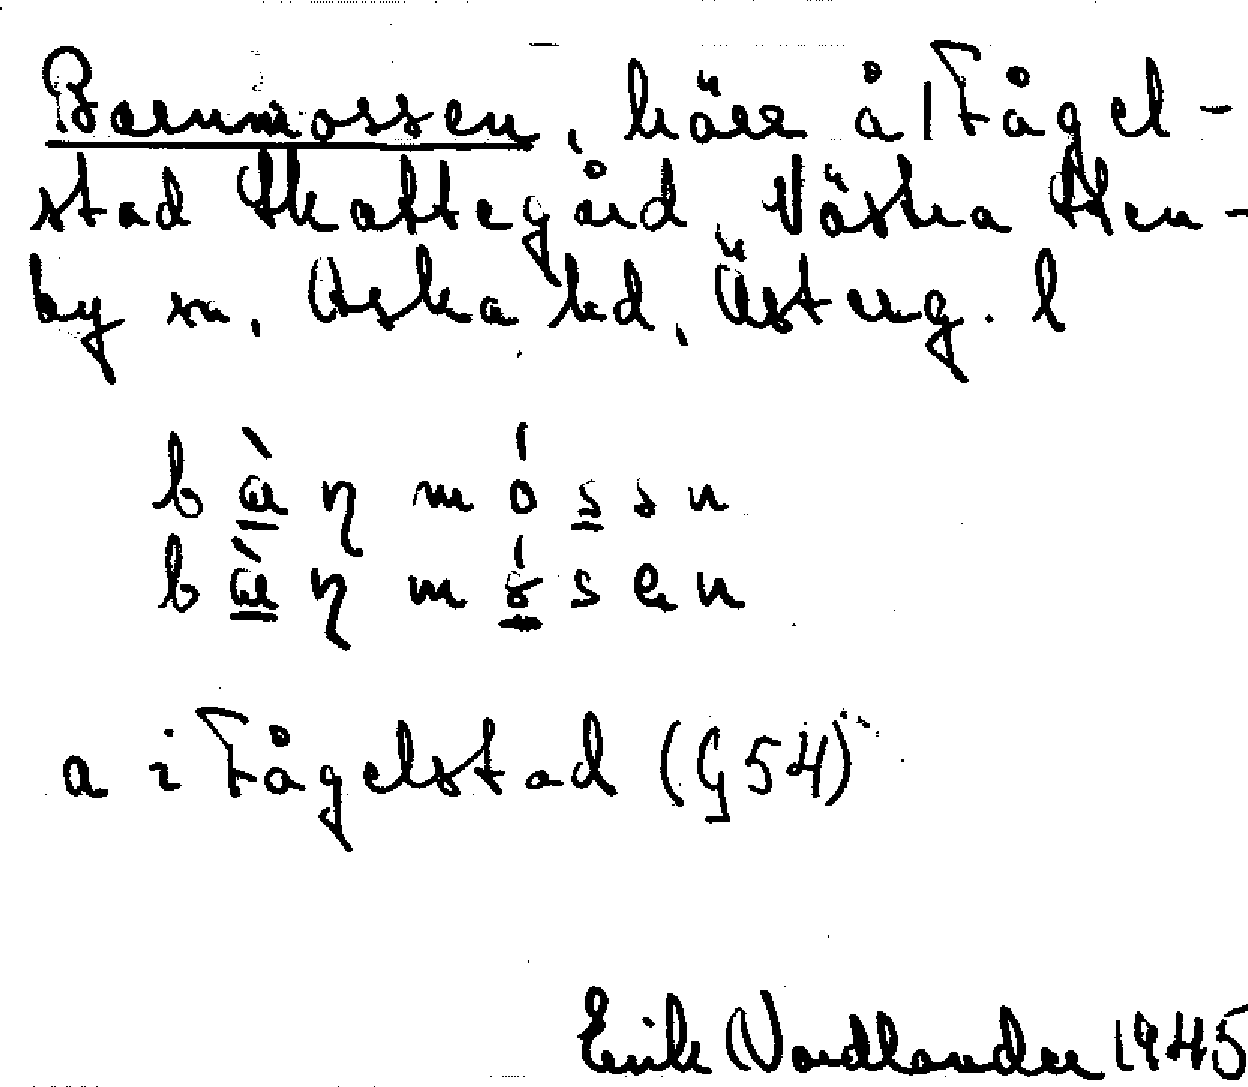 Barnmossen, kärr å 1 Fågel-
stad Skattegård, Västra Sten-
by sn, Aska hd, Österg. l
bàṇ móssn
bàṇ mósen
a i Fågelstad (G54)
Erik Nordlander 1945